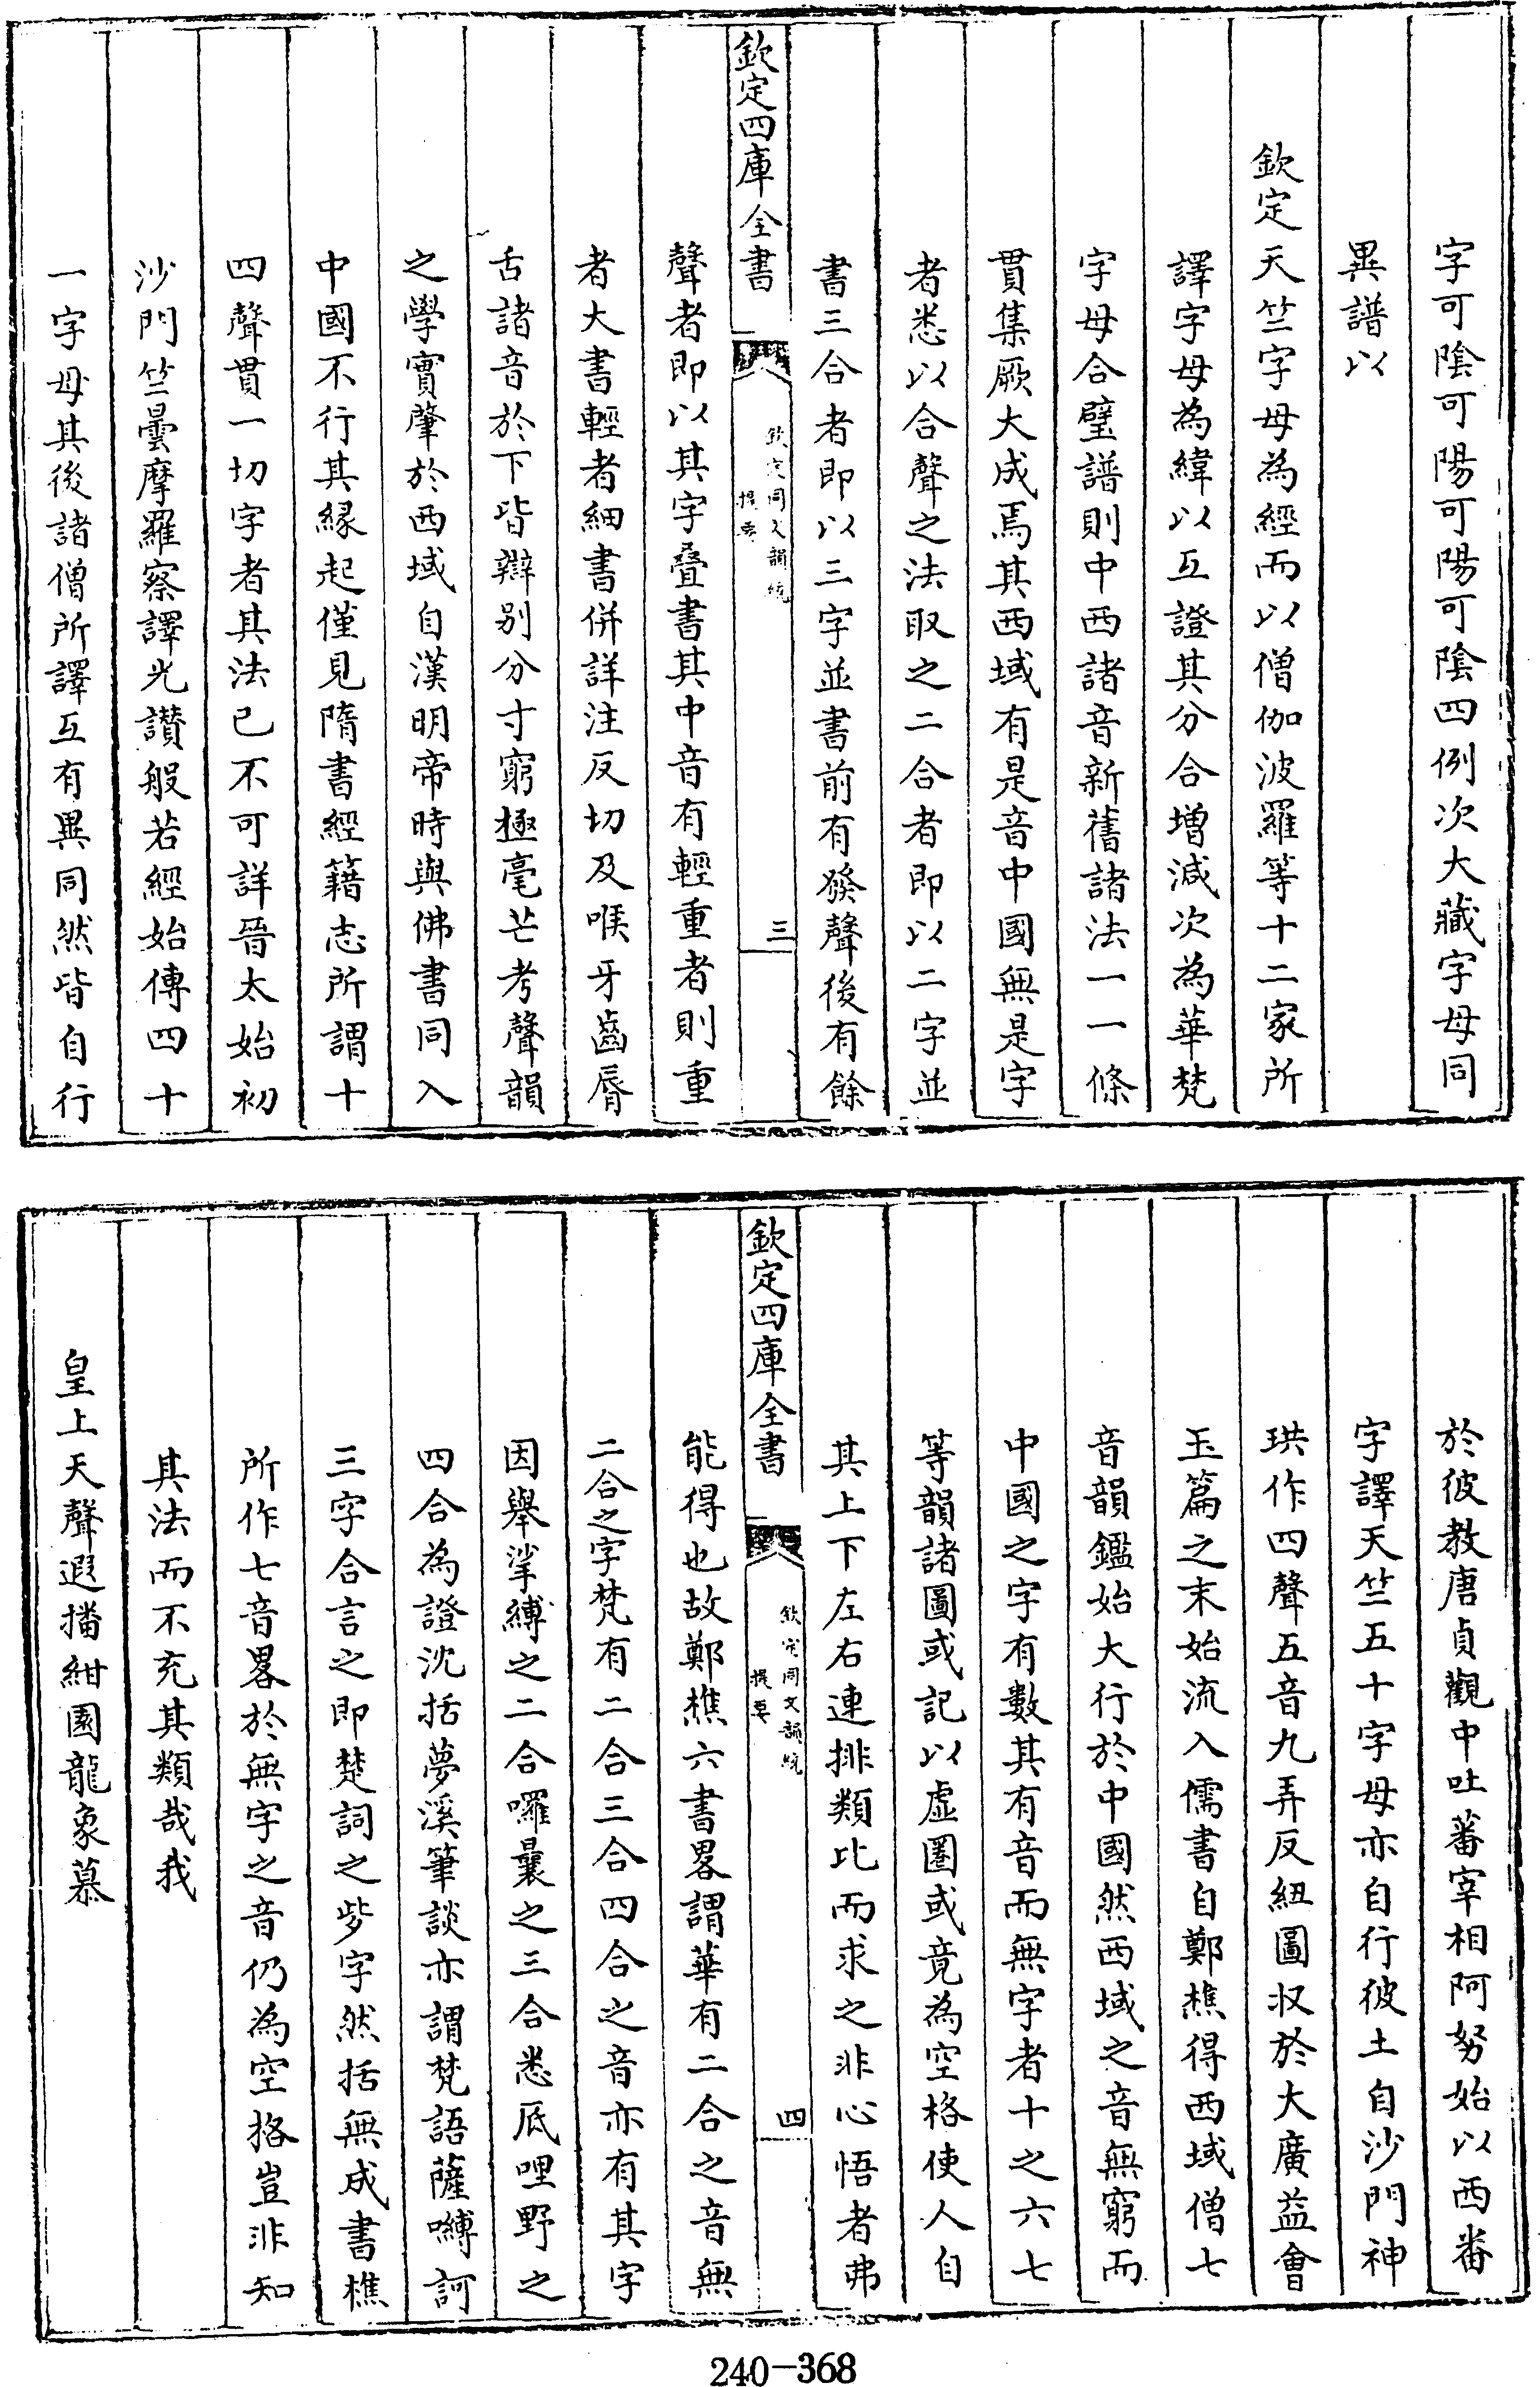 字可陰可陽可陽可陰四例次大藏字母同
異譜以
欽定天竺字母為經而以僧伽波羅等十二家所
譯字母為緯以互證其分合增減次為華梵
字母合璧譜則中西諸音新舊諸法一一條
貫集厥大成焉其西域有是音中國無是字
者悉以合聲之法取之二合者即以二字並
書三合者即以三字並書前有發聲後有餘
欽定四庫全書
欽定同文韻統
提要
三
聲者即以其字叠書其中音有輕重者則重
者大書輕者細書併詳注反切及喉牙齒脣
舌諸音於下皆辯别分寸窮極毫芒考聲韻
之學實肇於西域自漢明帝時與佛書同入
中國不行其緣起僅見隋書經籍志所謂十
四聲貫一切字者其法已不可詳晉太始初
沙門竺曇摩羅察譯光讃般若經始傳四十
一字母其後諸僧所譯互有異同然皆自行
於彼教唐貞觀中吐蕃宰相阿努始以西番
字譯天竺五十字母亦自行彼土自沙門神
珙作四聲五音九弄反紐圖収於大廣益會
玉篇之末始流入儒書自鄭樵得西域僧七
音韻鑑始大行於中國然西域之音無窮而
中國之字有數其有音而無字者十之六七
等韻諸圖或記以虛圈或竟為空格使人自
其上下左右連排類比而求之非心悟者弗
欽定四庫全書
欽定同文韻統
提要
四
能得也故鄭樵六書畧謂華有二合之音無
二合之字梵有二合三合四合之音亦有其字
因舉娑縛之二合囉曩之三合悉底哩野之
四合為證沈括夢溪筆談亦謂梵語薩嚩訶
三字合言之即楚詞之些字然括無成書樵
所作七音畧於無字之音仍為空格豈非知
其法而不充其類哉我
皇上天聲遐播紺園龍象慕
240-368